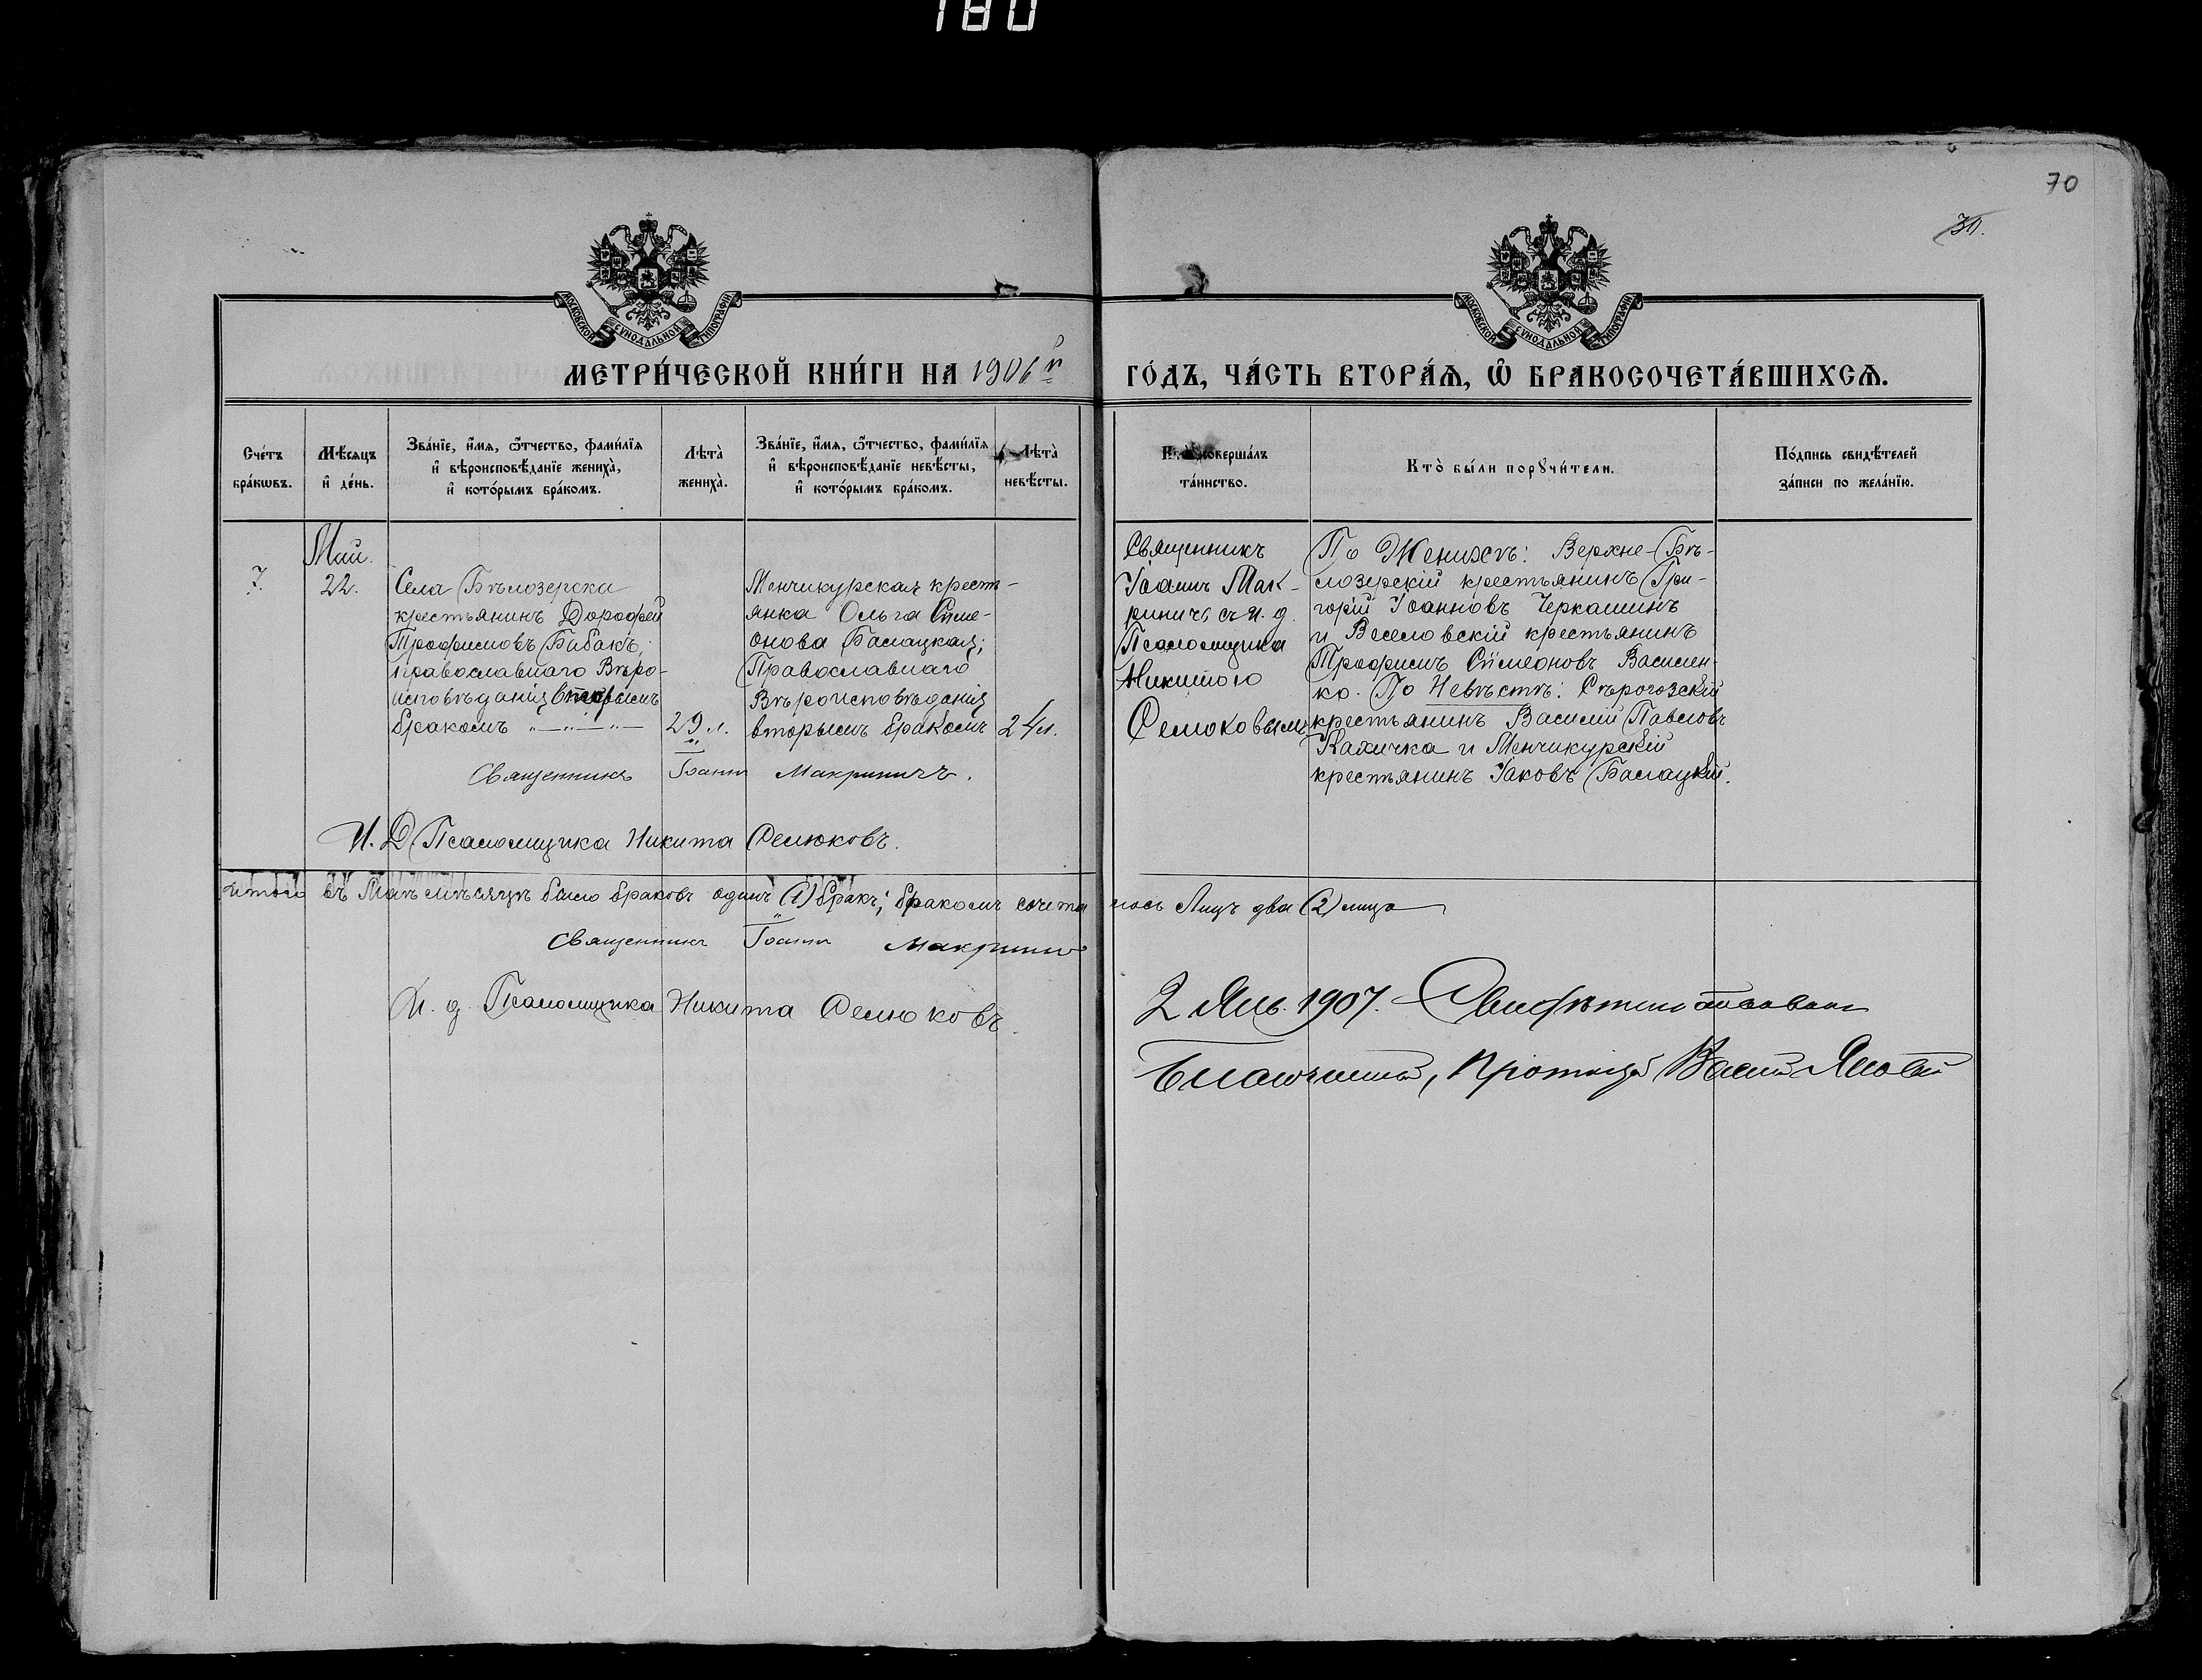 180
70
70.
МОСКОВСКОЙ СѴНОДАЛЬНОЙ ТИПОГРАФІИ
МОСКОВСКОЙ СѴНОДАЛЬНОЙ ТИПОГРАФІИ
МЕТРИ́ЧЕСКОЙ КНИ́ГИ НА 1906й ГО́ДЪ, ЧА́СТЬ ВТОРА́Ѧ, Ѽ БРАКОСОЧЕТА́ВШИХСѦ.
Сче́тъ бра́кѡвъ.
Мѣ́сяцъ и҆ де́нь.
Зва́нїе, и҆́мѧ, ѻ҆́тчество, фами́лїѧ и҆ вѣроисповѣ́данїе жениха̀, и҆ кото́рымъ бра́комъ.
Лѣта̀ жениха̀.
Зва́нїе, и҆́мѧ, ѻ҆́тчество, фами́лїѧ и҆ вѣроисповѣ́данїе невѣ́сты, и҆ кото́рымъ бра́комъ.
Лѣта̀ невѣ́сты.
Кто̀ соверша́лъ та́инство.
Кто̀ бы́ли порꙋчи́тели.
По́дпись свидѣ́телей за́писи по жела́нїю.
7.
Май.
22.
Села Бѣлозерки
крестьянинъ Дорофей
Трофимовъ Бабакъ,
православнаго Вѣро-
исповѣданія вторымъ
бракомъ
29 л.
Менчикурская крестъ-
янка Ольга Симе-
онова Балацкая;
Православнаго
Вѣроисповѣданія
вторымъ бракомъ
24 л.
Священникъ
Іоаннъ Мак-
риничъ съ и. д.
Псаломщика
Никитою
Селюковымъ
По Женихѣ: Верхне-Бѣ-
лозерскій крестьянинъ Гри-
горій Іоанновъ Черкашинъ
и Веселовскій крестьянинъ
Трофимъ Симеоновъ Василен-
ко. По Невѣстѣ: Сѣрогозскій
крестьянинъ Василій Павловъ
Кахичка и Менчикурскій
крестьянинъ Іаковъ Балацкій.
Священникъ Іоаннъ Макриничъ.
И. Д Псаломщика Никита Селюковъ.
Итого въ Маѣ мѣсяцѣ было браковъ одинъ (1) бракъ; бракомъ сочета лось Лицъ два (2) лица
Священникъ Іоаннъ Макриничъ
И. д. Псаломщика Никита Селюковъ.
2 Янв. 1907. Свидѣтельствовалъ
Благочинный, Протоіерей